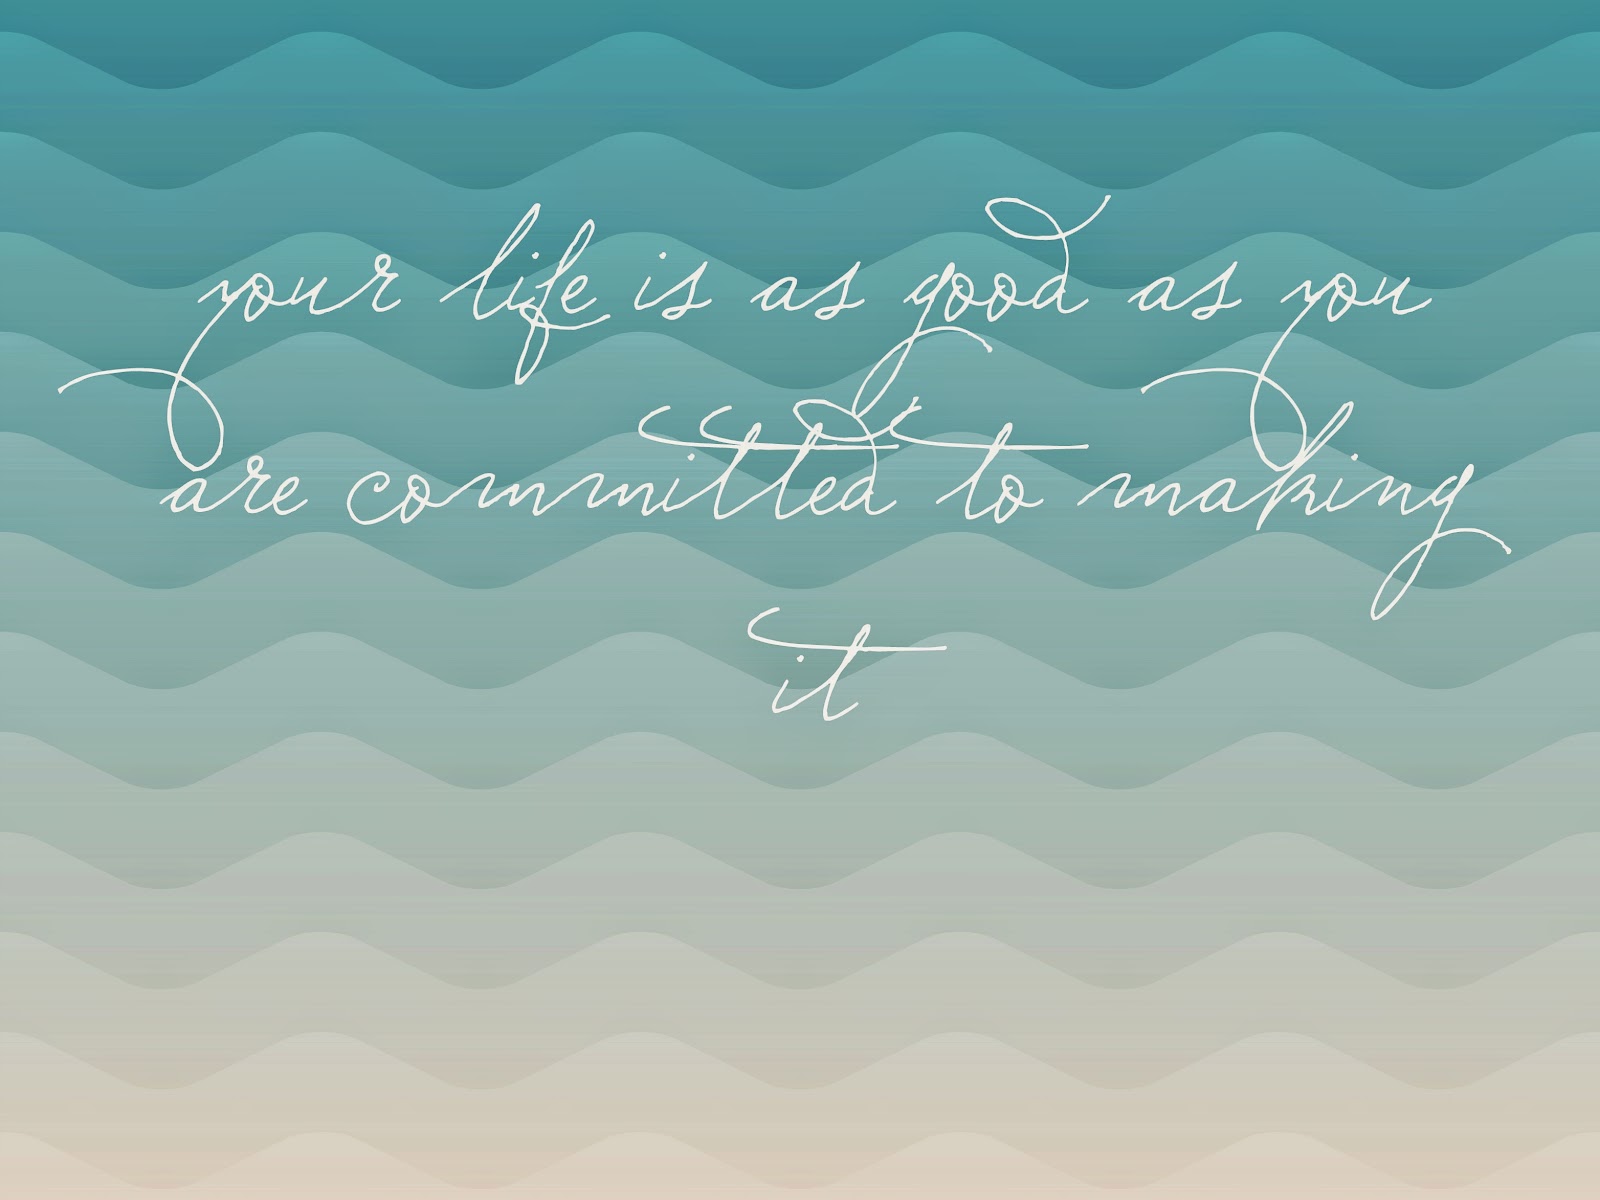 your life is as good as you
are committed to making
it